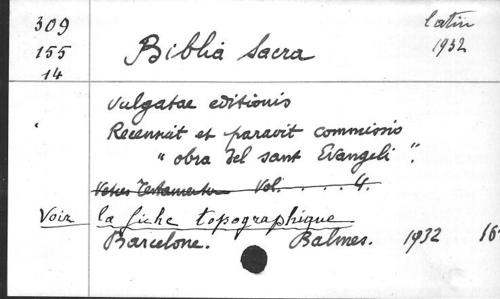 309
155
14
Latin
1932
Biblia Sacra
Vulgatae editionis
Recensuit et paravit commissio
"obra del sant Evangeli".
Vetus Testamentum Vol. . . . . 4.
Voir la fiche topographique
Barcelone. Balmes. 1932 16°